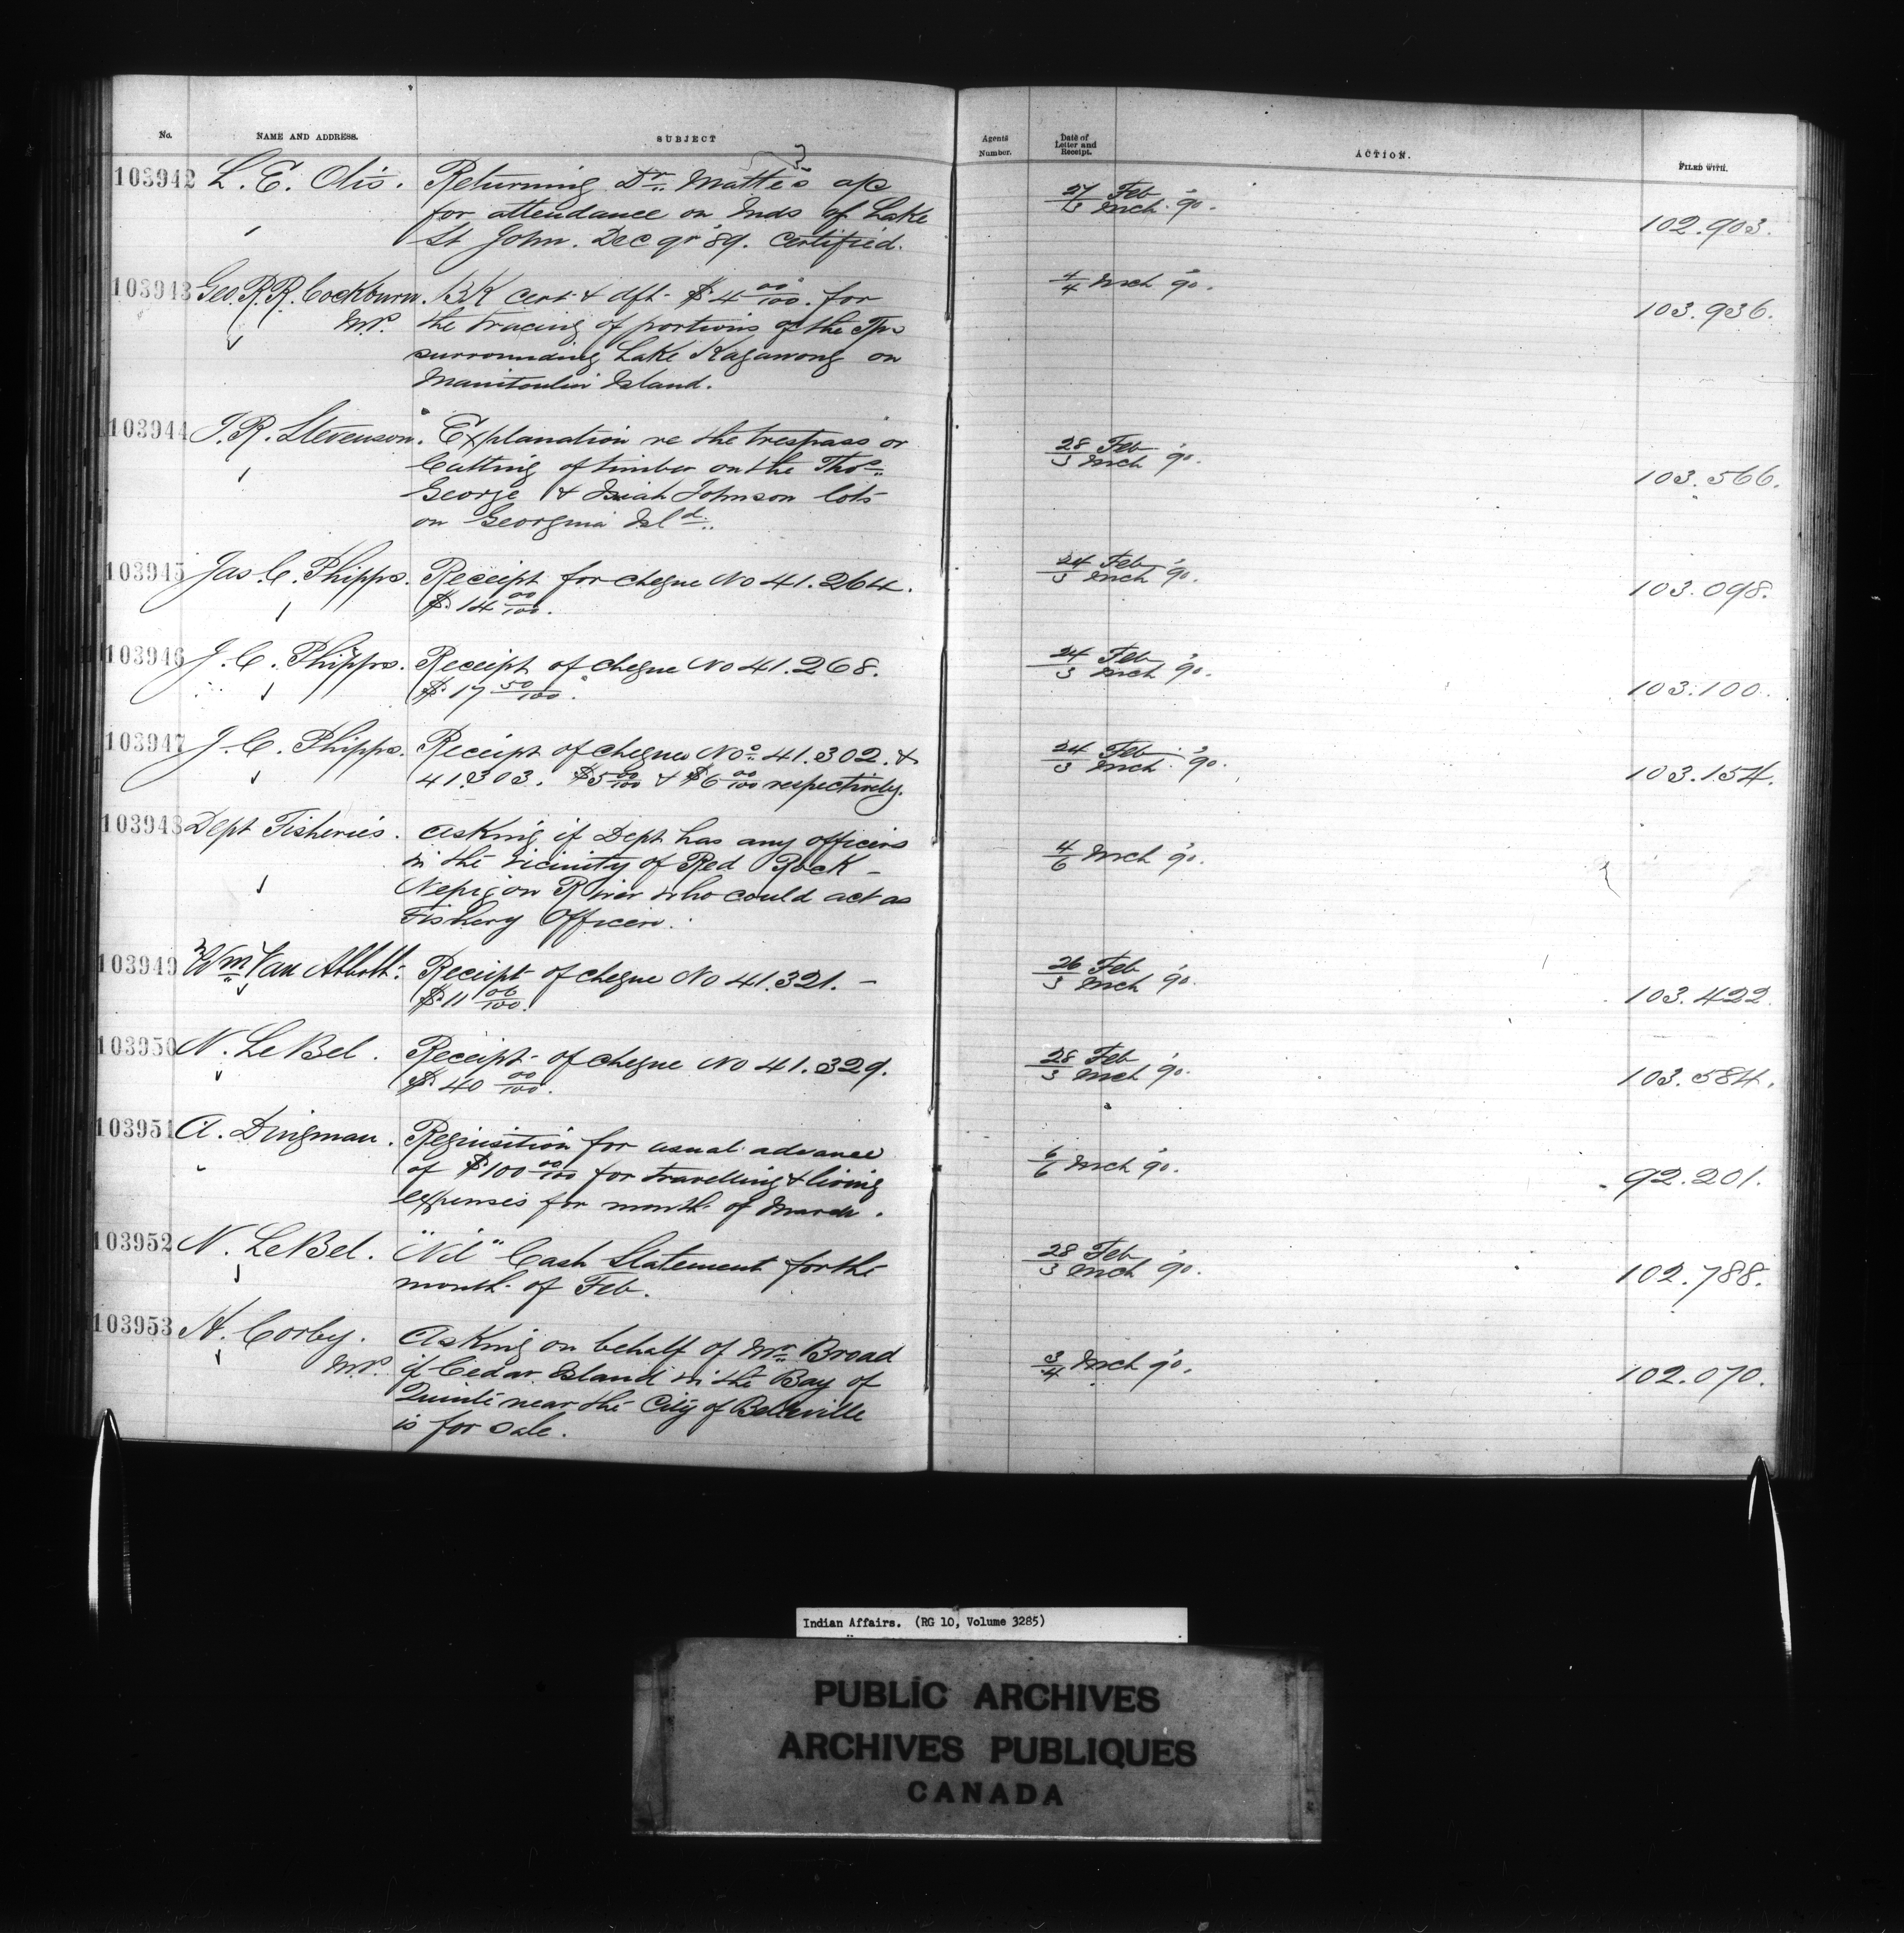 No. NAME AND ADDRESS. SUBJECT Agents Number. Date of Letter and Receipt. ACTION. FILED WITH.
103942 L. E. Otis. Returning Dr. Matte's a/c 27/3 Feb Mch '90. 102.903.
for attendance on Inds of Lake
St John. Dec qr '89. Certified.
103943 Geo. R. R. Cockburn. BK cert. & dft. $4 00/100. for 4/4 Mch '90. 103.936.
M.P. the tracing of portions of the Tps
surrounding Lake Kagawong on
Manitoulin Island.
103944 J. R. Stevenson. Explanation re the trespass or 28/3 Feb Mch '90. 103.566.
Cutting of timber on the Thos.
George & Isiah Johnson lots
on Georgina Isld.
103945 Jas. C. Phipps. Receipt for cheque No 41.264. 24/3 Feb Mch '90. 103.098.
$14 00/100.
103946 J. C. Phipps. Receipt of cheque No 41.268. 24/3 Feb Mch '90. 103.100.
$17 50/100.
103947 J. C. Phipps. Receipt of cheques Nos. 41.302. & 24/3 Feb Mch '90. 103.154.
41.303. $5 00/100 & $6 00/100 respectively.
103948 Dept Fisheries. Asking if Dept has any officers 4/6 Mch '90.
in the vicinity of Red Rock -
Nepigon River who could act as
Fishery Officers.
103949 Wm Van Abbott. Receipt of cheque No 41.321. - 26/3 Feb Mch '90. 103.422.
$11 06/100.
103950 N. LeBel. Receipt of cheque No 41.329. 28/3 Feb Mch '90. 103.584.
$40 00/100.
103951 A. Dingman. Requisition for usual advance 6/6 Mch '90. 92.201.
of $100 00/100 for travelling & living
expenses for month of March.
103952 N. LeBel. "Nil" Cash Statement for the 28/3 Feb Mch '90. 102.788.
month of Feb.
103953 H. Corby. Asking on behalf of Mr. Broad 3/4 Mch '90. 102.070.
M.P. if Cedar Island in the Bay of
Quinté near the City of Belleville
is for sale.
Indian Affairs. (RG 10, Volume 3285)
PUBLIC ARCHIVES
ARCHIVES PUBLIQUES
CANADA